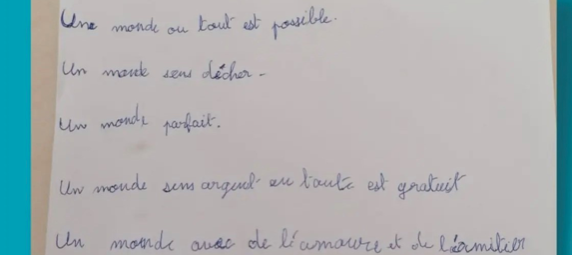 Une monde ou tout est possible.
Un monde sens décher -
Un monde parfait.
Un monde sens argent ou toute est gratuit
Un monde avec de l'éamoure et de l'érmitier